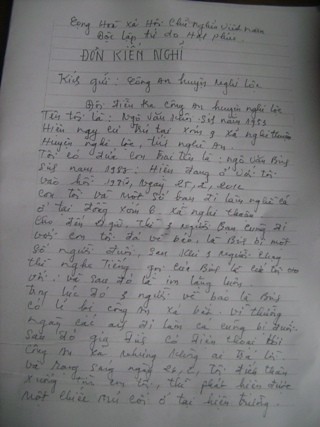 Cộng Hoà xã Hội Chủ Nghĩa Việt Nam
Độc lập tự do Hạnh phúc
ĐƠN KIẾN NGHỊ
Kính gửi: Công An huyện Nghi Lộc
Đội điều tra công An huyện nghi lộc
Tên tôi là: Ngô Văn sinh năm 1953
Hiện nay cư trú tại xóm xã nghi
Huyện nghi lộc, tỉnh nghệ An
Tôi có đứa con trai tên là: ngô văn Bính
sinh năm 1983: Hiện đang ở với tôi
vào hồi ngày 25,
con tôi và một số bạn đi làm nghề cá
ở tại đồng xóm 8, xã nghi
cho đến thì 3 người Bạn cùng đi
với con tôi đã về báo, là Bính bị một
số người đuổi, sau khi 3 người chạy
thì nghe tiếng gọi của Bính
với: và sau đó là im lặng luôn
lúc đó 3 người về báo là Bính
có lẽ bị công An xã bắt. vì thường
ngày các đi làm ca cũng bị đuổi.
sau đó gia đình có điện thoại thì
công An xã nhưng không ai trả lời
và rạng sáng ngày tôi đích thân
xuống tìm con tôi, thì phát hiện được
một chiếc mũ cối ở tại hiện trường.